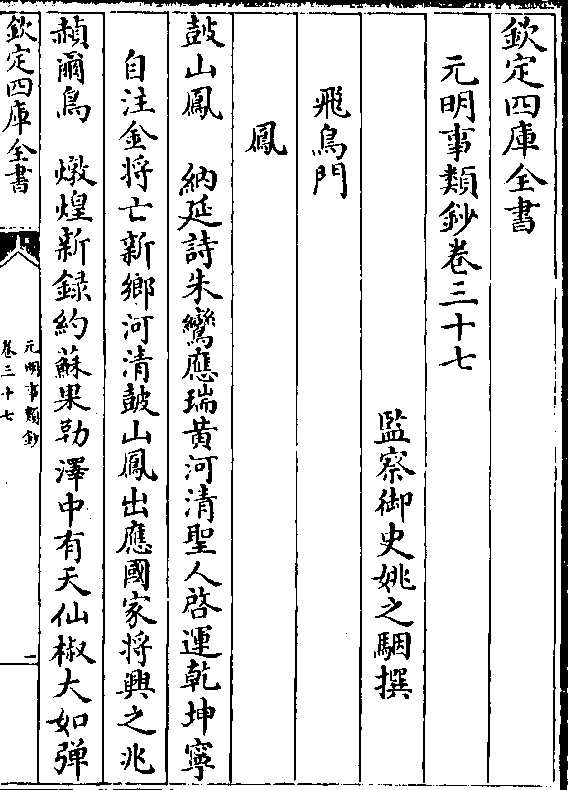 欽定四庫全書
元明事類鈔卷三十七
監察御史姚之駰撰
飛鳥門
鳳
鼓山鳳　納延詩朱鸞應瑞黄河清聖人啓運乾坤寧
自注金將亡新鄉河清鼓山鳳出應國家將興之兆
頳爾鳥　燉煌新録約蘇果勒澤中有天仙椒大如弹
欽定四庫全書
元明事類鈔
卷三十七
一